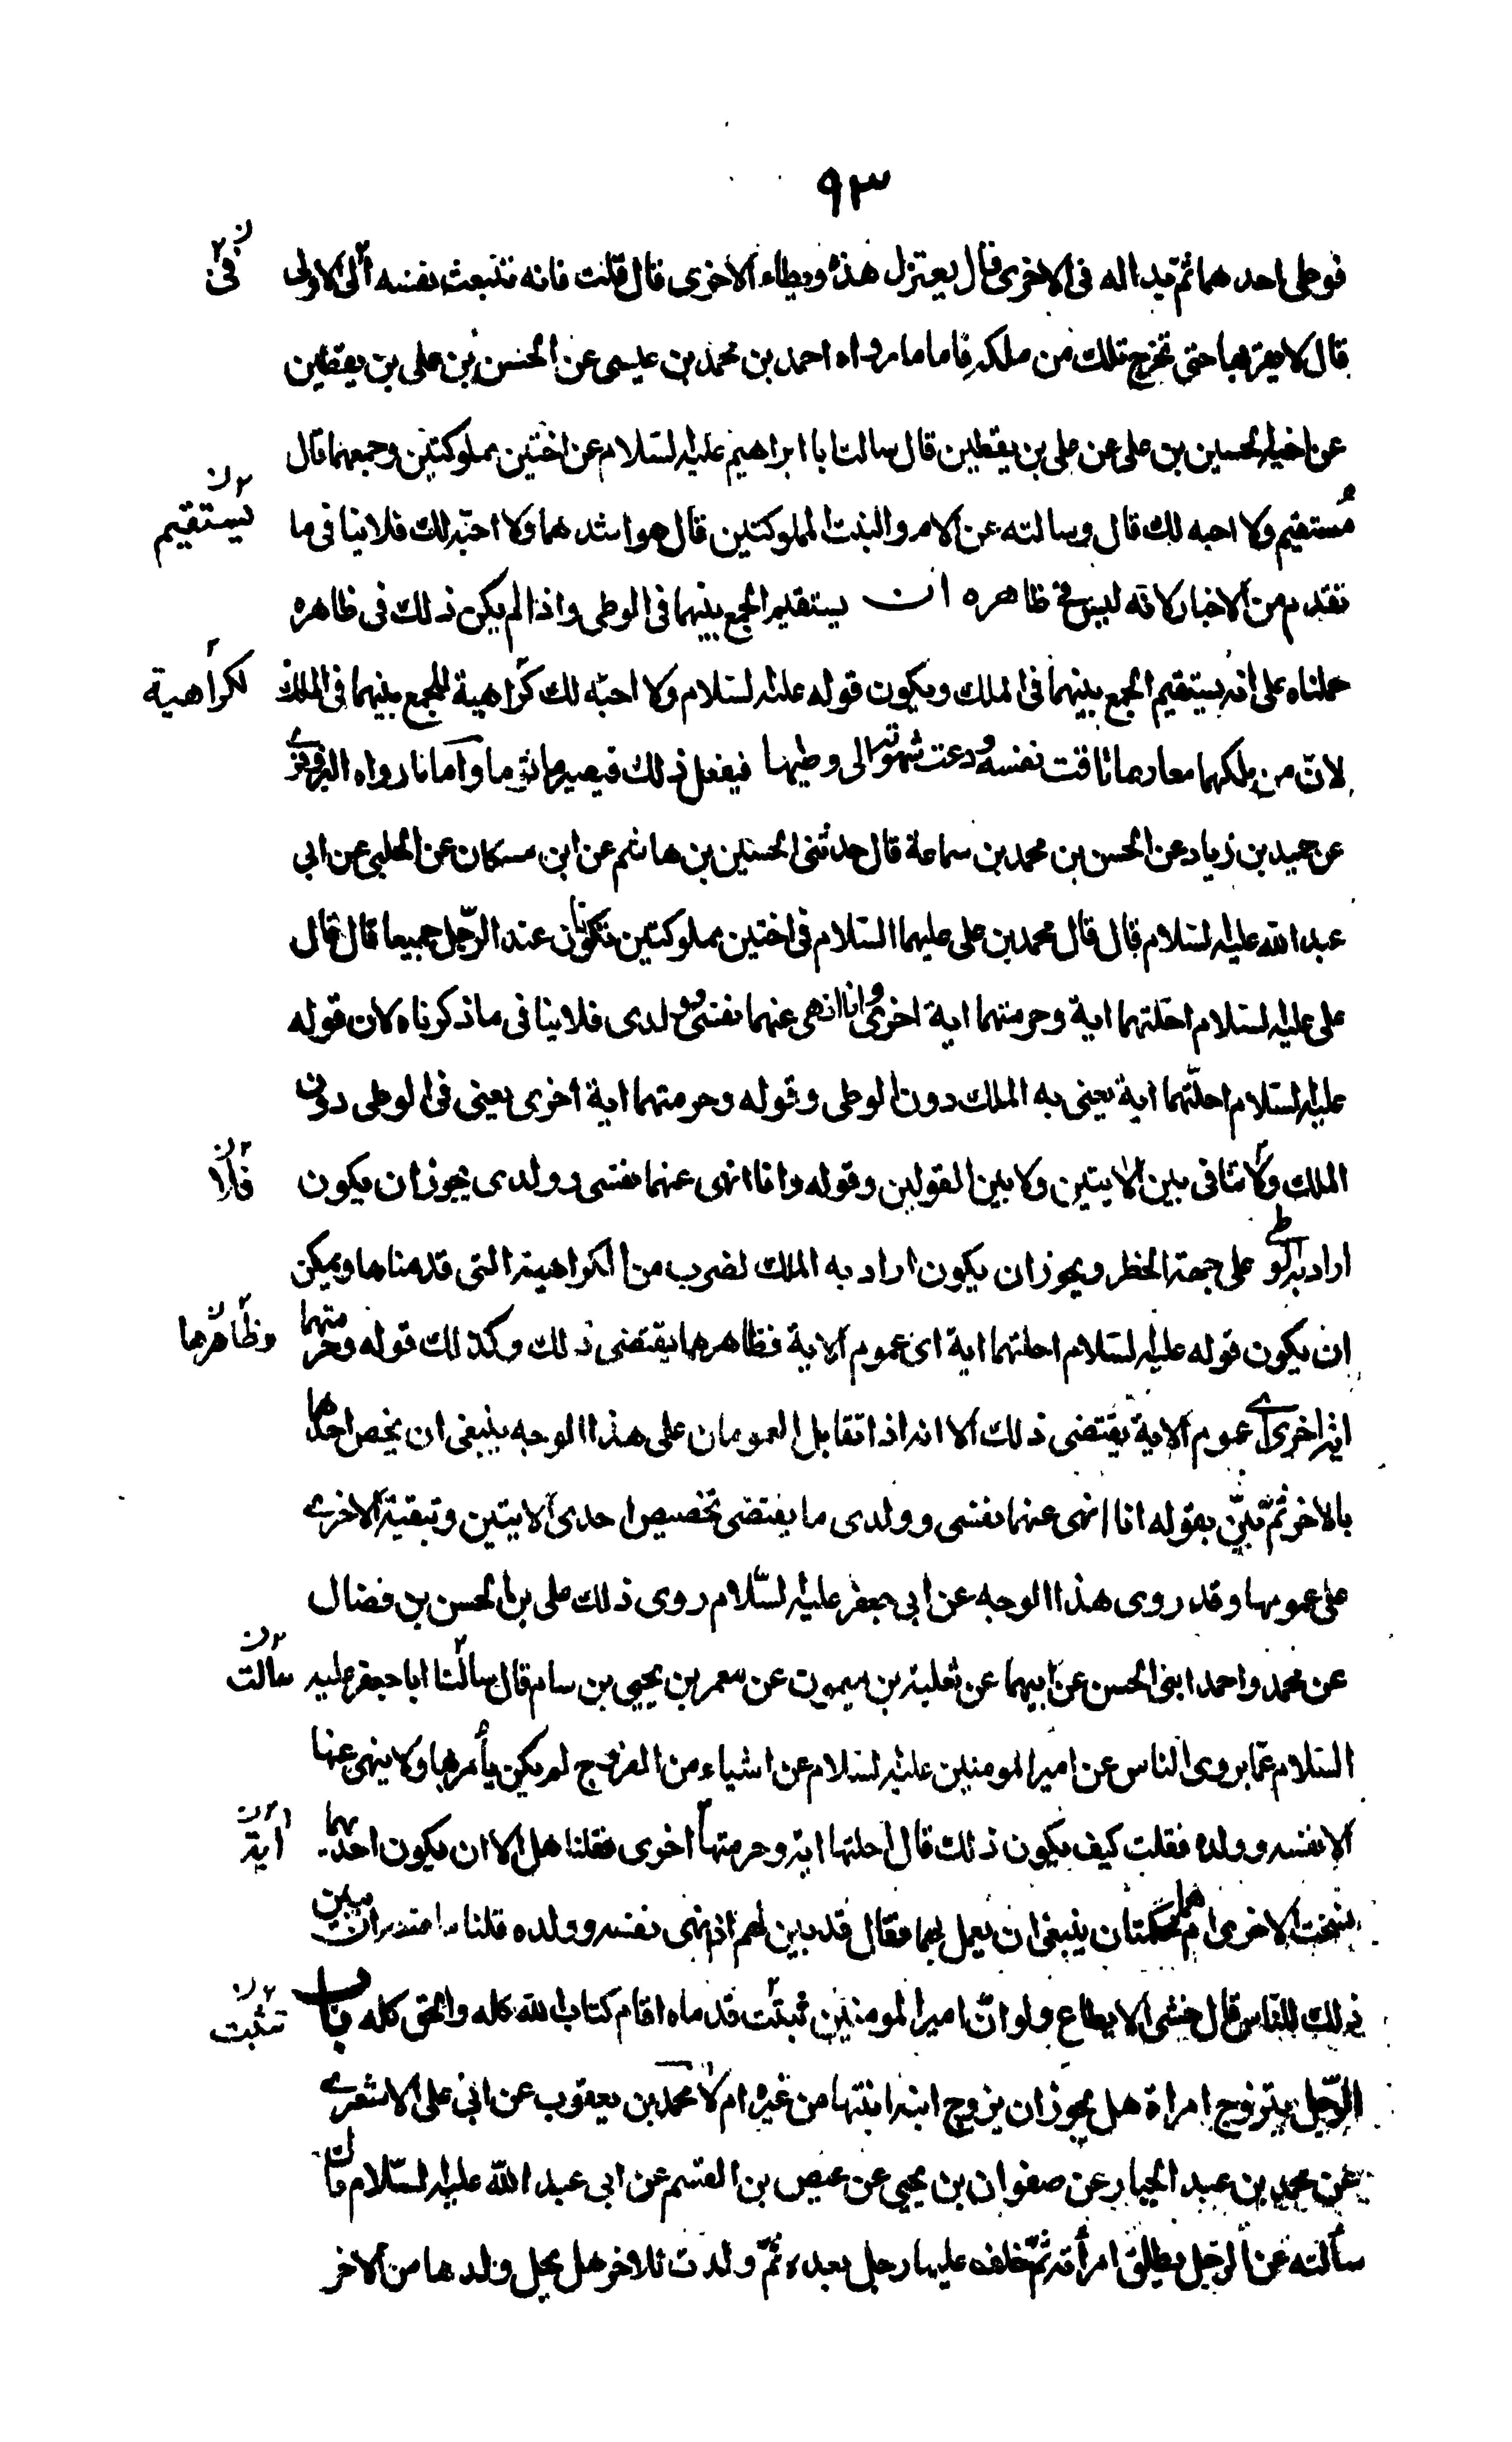 ٩٣
فوطى احدهما ثم بدا له فى الاخرى قال يعتزل هذه ويطاء الاخرى قال قلت فانه تنبعث نفسه الى الاولى
فى
قال لا يقربها حتى تخرج تلك من ملكه فاما ما رواه احمد بن محمد بن عيسى عن الحسن بن على بن يقطين
عن اخيه الحسين بن على عن على بن يقطين قال سالت ابا ابراهيم عليه السلام عن اختين مملوكتين وجمعهما قال
مستقيم ولا احبه لك قال وسالته عن الام والبنت المملوكتين قال هو اشدهما ولا احبه لك فلا ينافى ما
يستقيم
تقدم من الاخبار لانه ليس فى ظاهره ان يستقيم الجمع بينهما فى الوطى واذا لم يكن ذلك فى ظاهره
حملناه على انه يستقيم الجمع بينهما فى الملك ويكون قوله عليه السلام ولا احبه لك كراهية للجمع بينهما فى الملك
لكراهية
لانّ من ملكهما معا ربما تاقت نفسه ودعت شهوته الى وطيهما فيفعل ذلك فيصير ماثوما واما ما رواه البزوفرى
عن حميد بن زياد عن الحسن بن محمد بن سماعة قال حدثنى الحسين بن هاشم عن ابن مسكان عن الحلبى عن ابى
عبد الله عليه السلام قال قال محمد بن على عليهما السلام فى اختين مملوكتين تكونان عند الرجل جميعا قال قال
على عليه السلام احلتهما اية وحرمتهما اية اخرى وانا انهى عنهما نفسى وولدى فلا ينافى ما ذكرناه لان قوله
عليه السلام احلّتهما اية يعنى به الملك دون الوطى وقوله وحرمتهما اية اخرى يعنى فى الوطى دون
الملك ولا تنافى بين الايتين ولا بين القولين وقوله وانا انهى عنهما نفسى وولدى يجوز ان يكون
فلا
اراد به الوطى على جهة الحظر ويجوز ان يكون اراد به الملك لضرب من الكراهية التى قدمناها ويمكن
ان يكون قوله عليه السلام احلتهما اية اى عموم الاية فظاهرهما يقتضى ذلك وكذلك قوله وحرمتهما
وظاهرها
اية اخرى اى عموم الاية يقتضى ذلك الا انه اذا تقابل العمومان على هذا الوجه ينبغى ان يخص احدهما
بالاخر ثم بيّن بقوله انا انهى عنهما نفسى وولدى ما يقتضى تخصيص احدى الايتين وتبقية الاخرى
على عمومها وقد روى هذا الوجه عن ابى جعفر عليه السّلام روى ذلك على بن الحسن بن فضال
عن محمد واحمد ابنى الحسن عن ابيهما عن ثعلبة بن ميمون عن معمر بن يحيى بن سام قال سالنا ابا جعفر عليه
سالت
السّلام عمّا يروى الناس عن امير المومنين عليه السلام عن اشياء من الفروج لم يكن يأمر بها ولا ينهى عنها
الا نفسه وولده فقلت كيف يكون ذلك قال احلتها اية وحرمتها اخرى فقلنا هل الا ان يكون احديهما
اية
نسخت الاخرى ام هما محكمتان ينبغى ان يعمل بهما فقال قد بين لهم اذ نهى نفسه وولده قلنا ما منعه ان يبين
ذلك للناس قال خشى الا يطاع ولو انّ امير المومنين ثبتت قدماه اقام كتاب الله كله والحق كله باب
تثبت
الرّجل يتزوج امراة هل يجوز ان يزوج ابنه ابنتها من غيره ام لا محمد بن يعقوب عن ابى على الاشعرى
عن محمد بن عبد الجبار عن صفوان بن يحيى عن عيص بن القسم عن ابى عبد الله عليه السّلام قال
سألته عن الرجل يطلق امرأته ثمّ خلف عليها رجل بعده ثمّ ولدت للاخر هل يحل ولدها من الاخر